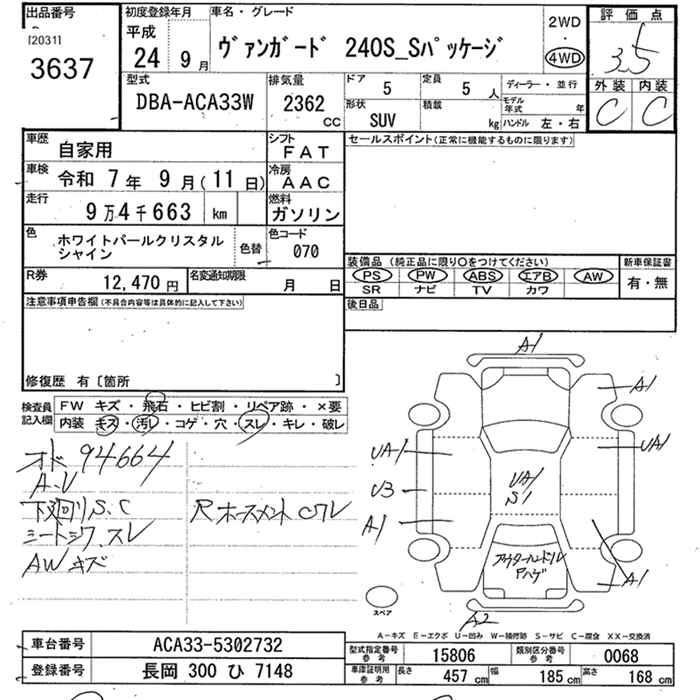 出品番号
[2031]
3637
初度登録年月
平成
24年 9月
車名・グレード
ヴァンガード 240S_Sパッケージ
2WD
・
4WD
評価点
3.5
外装 内装
C C
型式
DBA-ACA33W
排気量
2362
CC
ドア
5
定員
5 人
ディーラー・並行
形状
SUV
積載
kg
モデル年式 年
ハンドル 左・右
車歴
自家用
シフト
FAT
車検
令和 7年 9月(11日)
冷房
AAC
走行
9万4千663 km
燃料
ガソリン
色
ホワイトパールクリスタル
シャイン
色替
色コード
070
R券
12,470 円
名変通知期限
月 日
注意事項申告欄(不具合内容等は具体的に記入して下さい)
修復歴 有〔箇所 〕
セールスポイント(正常に機能するものに限ります)
装備品 (純正品に限り○をつけてください)
PS PW ABS エアB AW
SR ナビ TV カワ
新車保証書
有・無
後日品
検査員
記入欄
FW キズ・飛石・ヒビ割・リペア跡・×要
内装 キズ・汚レ・コゲ・穴・スレ・キレ・破レ
オド 94664
A-V
下廻りS、C
シートシワ、スレ
AWキズ
Rホースメント Cワレ
A1
A1
UA1
UA1
U3
UA1
S1
A1
アウターハンドル
Pハゲ
A1
A2
スペア
A-キズ E-エクボ U-凹み W-補修跡 S-サビ C-腐食 XX-交換済
車台番号
ACA33-5302732
登録番号
長岡 300 ひ 7148
型式指定番号
参考
15806
類別区分番号
参考
0068
車庫証明用
参考
長さ 457 cm 幅 185 cm 高さ 168 cm